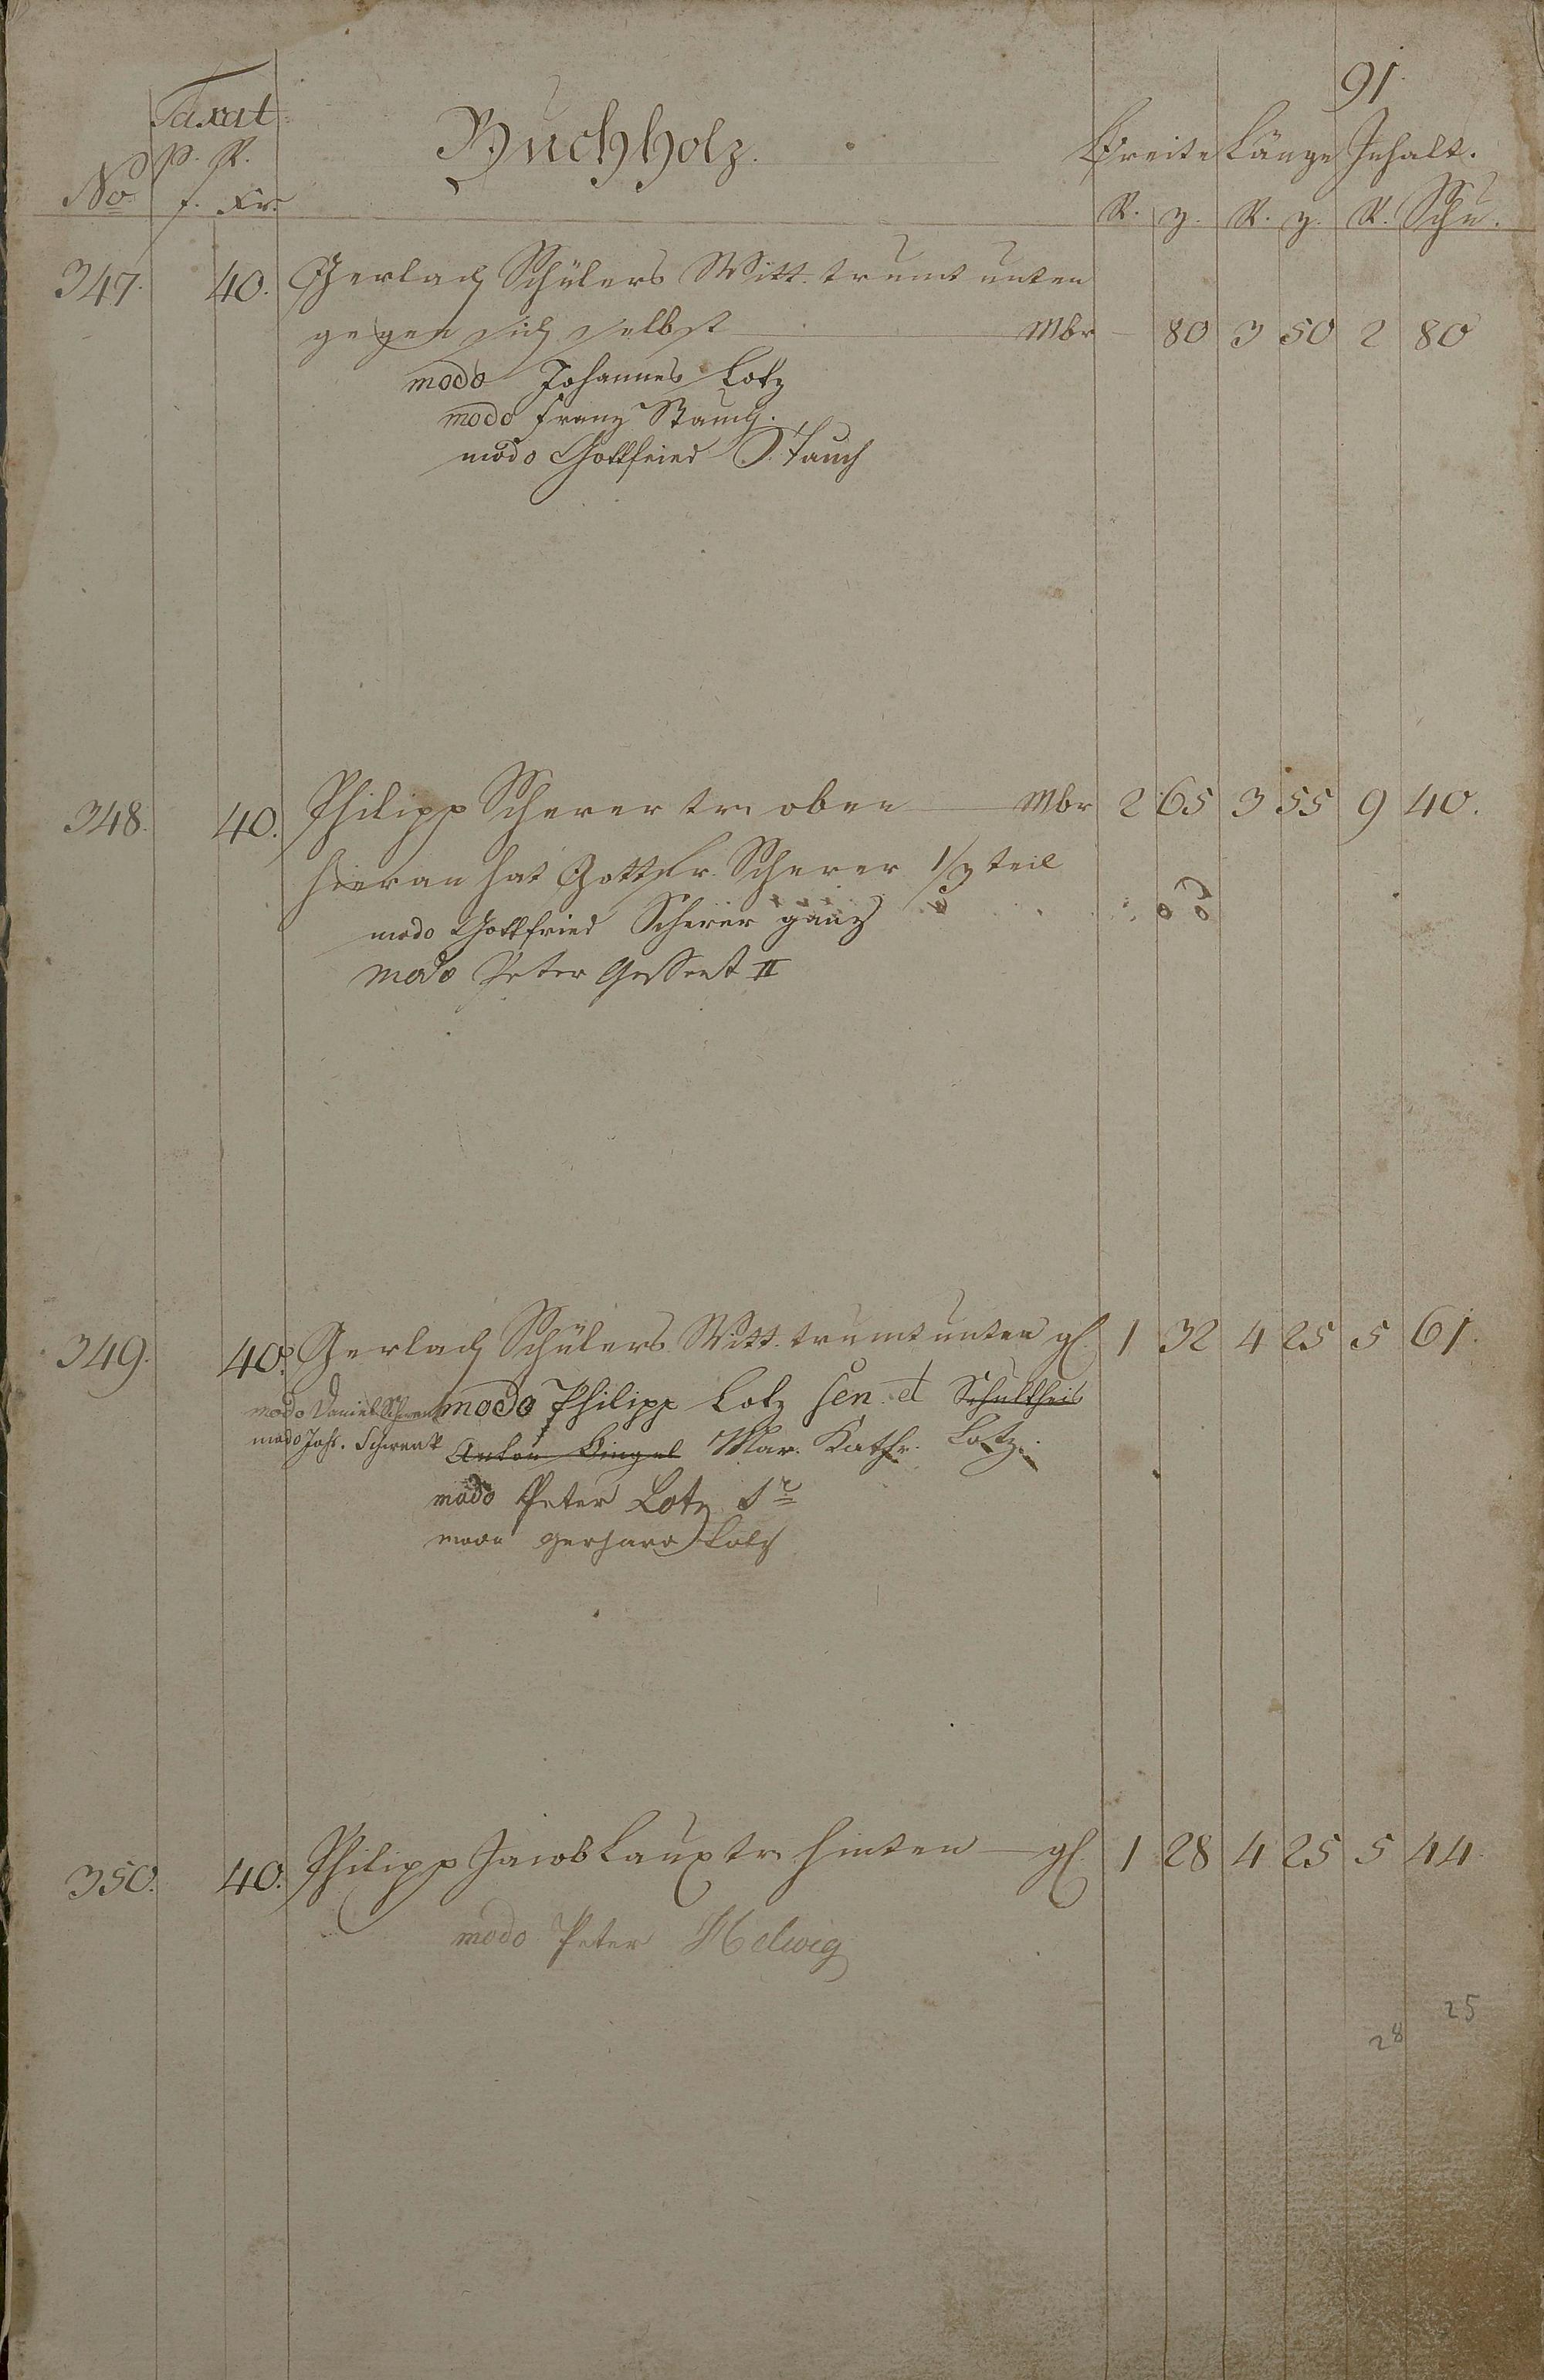 91.
Taxat.
Buchholz.
Breite Länge Jnhalt.
p. R.
No. f. Kr.
R. z. R. z. R. Schu.
347. 40. Gerlach Schülers Witt. trumt unten
gegen sich selbst Mbr — 80 3 50 2 80
modo Johannes Lotz
modo Franz Stauch.
modo Gottfried Stauch
348. 40. Philipp Scherer tr. oben Mbr 2 65 3 55 9 40.
hieran hat Gottfr. Scherer 1/3 teil
modo Gottfried Scherer ganz
modo Peter II
349. 40. Gerlach Schülers Witt. trumt unten gl. 1 32 4 25 5 61.
modo Daniel Schwenk modo Philipp Lotz sen. et Schultheis
modo Johs. Schwenk Anton Mar. Kathr. Lotz.
modo Peter Lotz Sr
modo Gerhard Lotz
350. 40. Philipp Jacob Laux tr. hinten gl. 1 28 4 25 5 44.
modo Peter Helwig
25
28